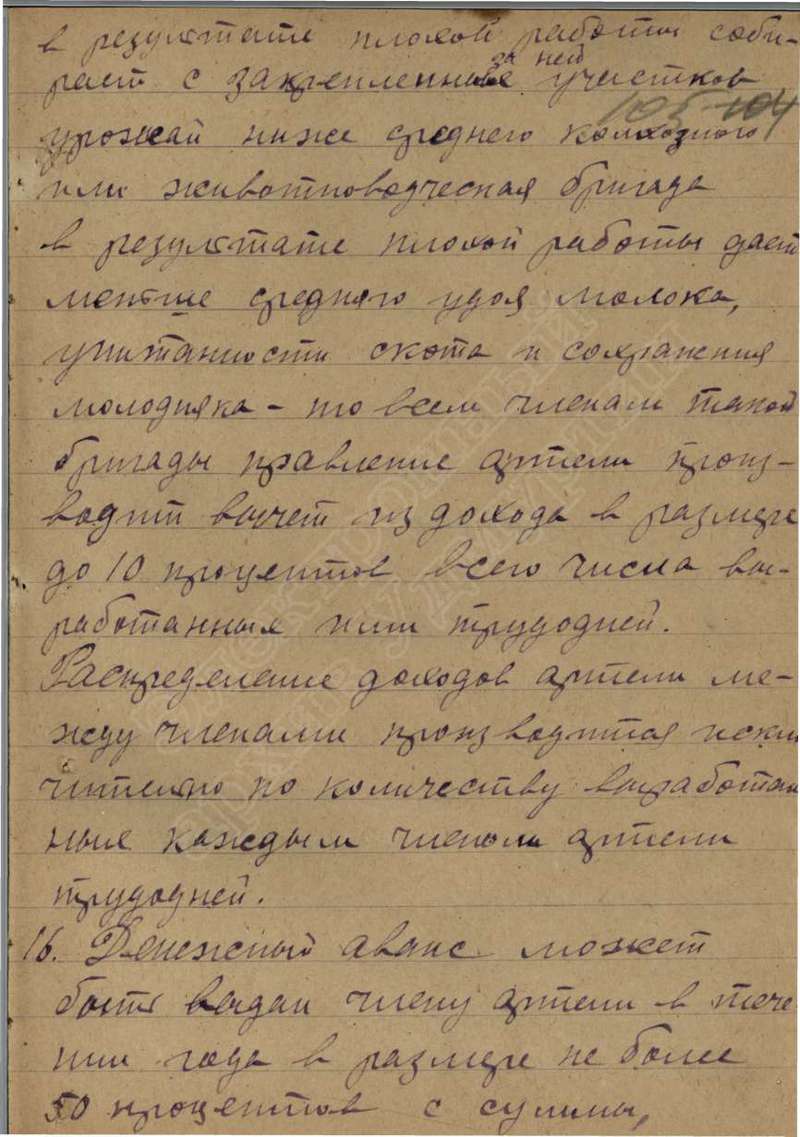 в результате плохой работы соби-
рает с закрепленных за ней участков
105 104
урожай ниже среднего колхозного
или животноводческая бригада
в результате плохой работы дает
меньше среднего удоя молока,
упитанности скота и сохранения
молодняка - то всем членам такой
бригады правление артели произ-
водит вычет из дохода в размере
до 10 процентов всего числа вы-
работанных ими трудодней.
Распределение доходов артели ме-
жду членами производится исклю
чительно по количеству выработан
ных каждым членом артели
трудодней.
16. Денежный аванс может
быть выдан члену артели в тече
нии года в размере не более
50 процентов с суммы,